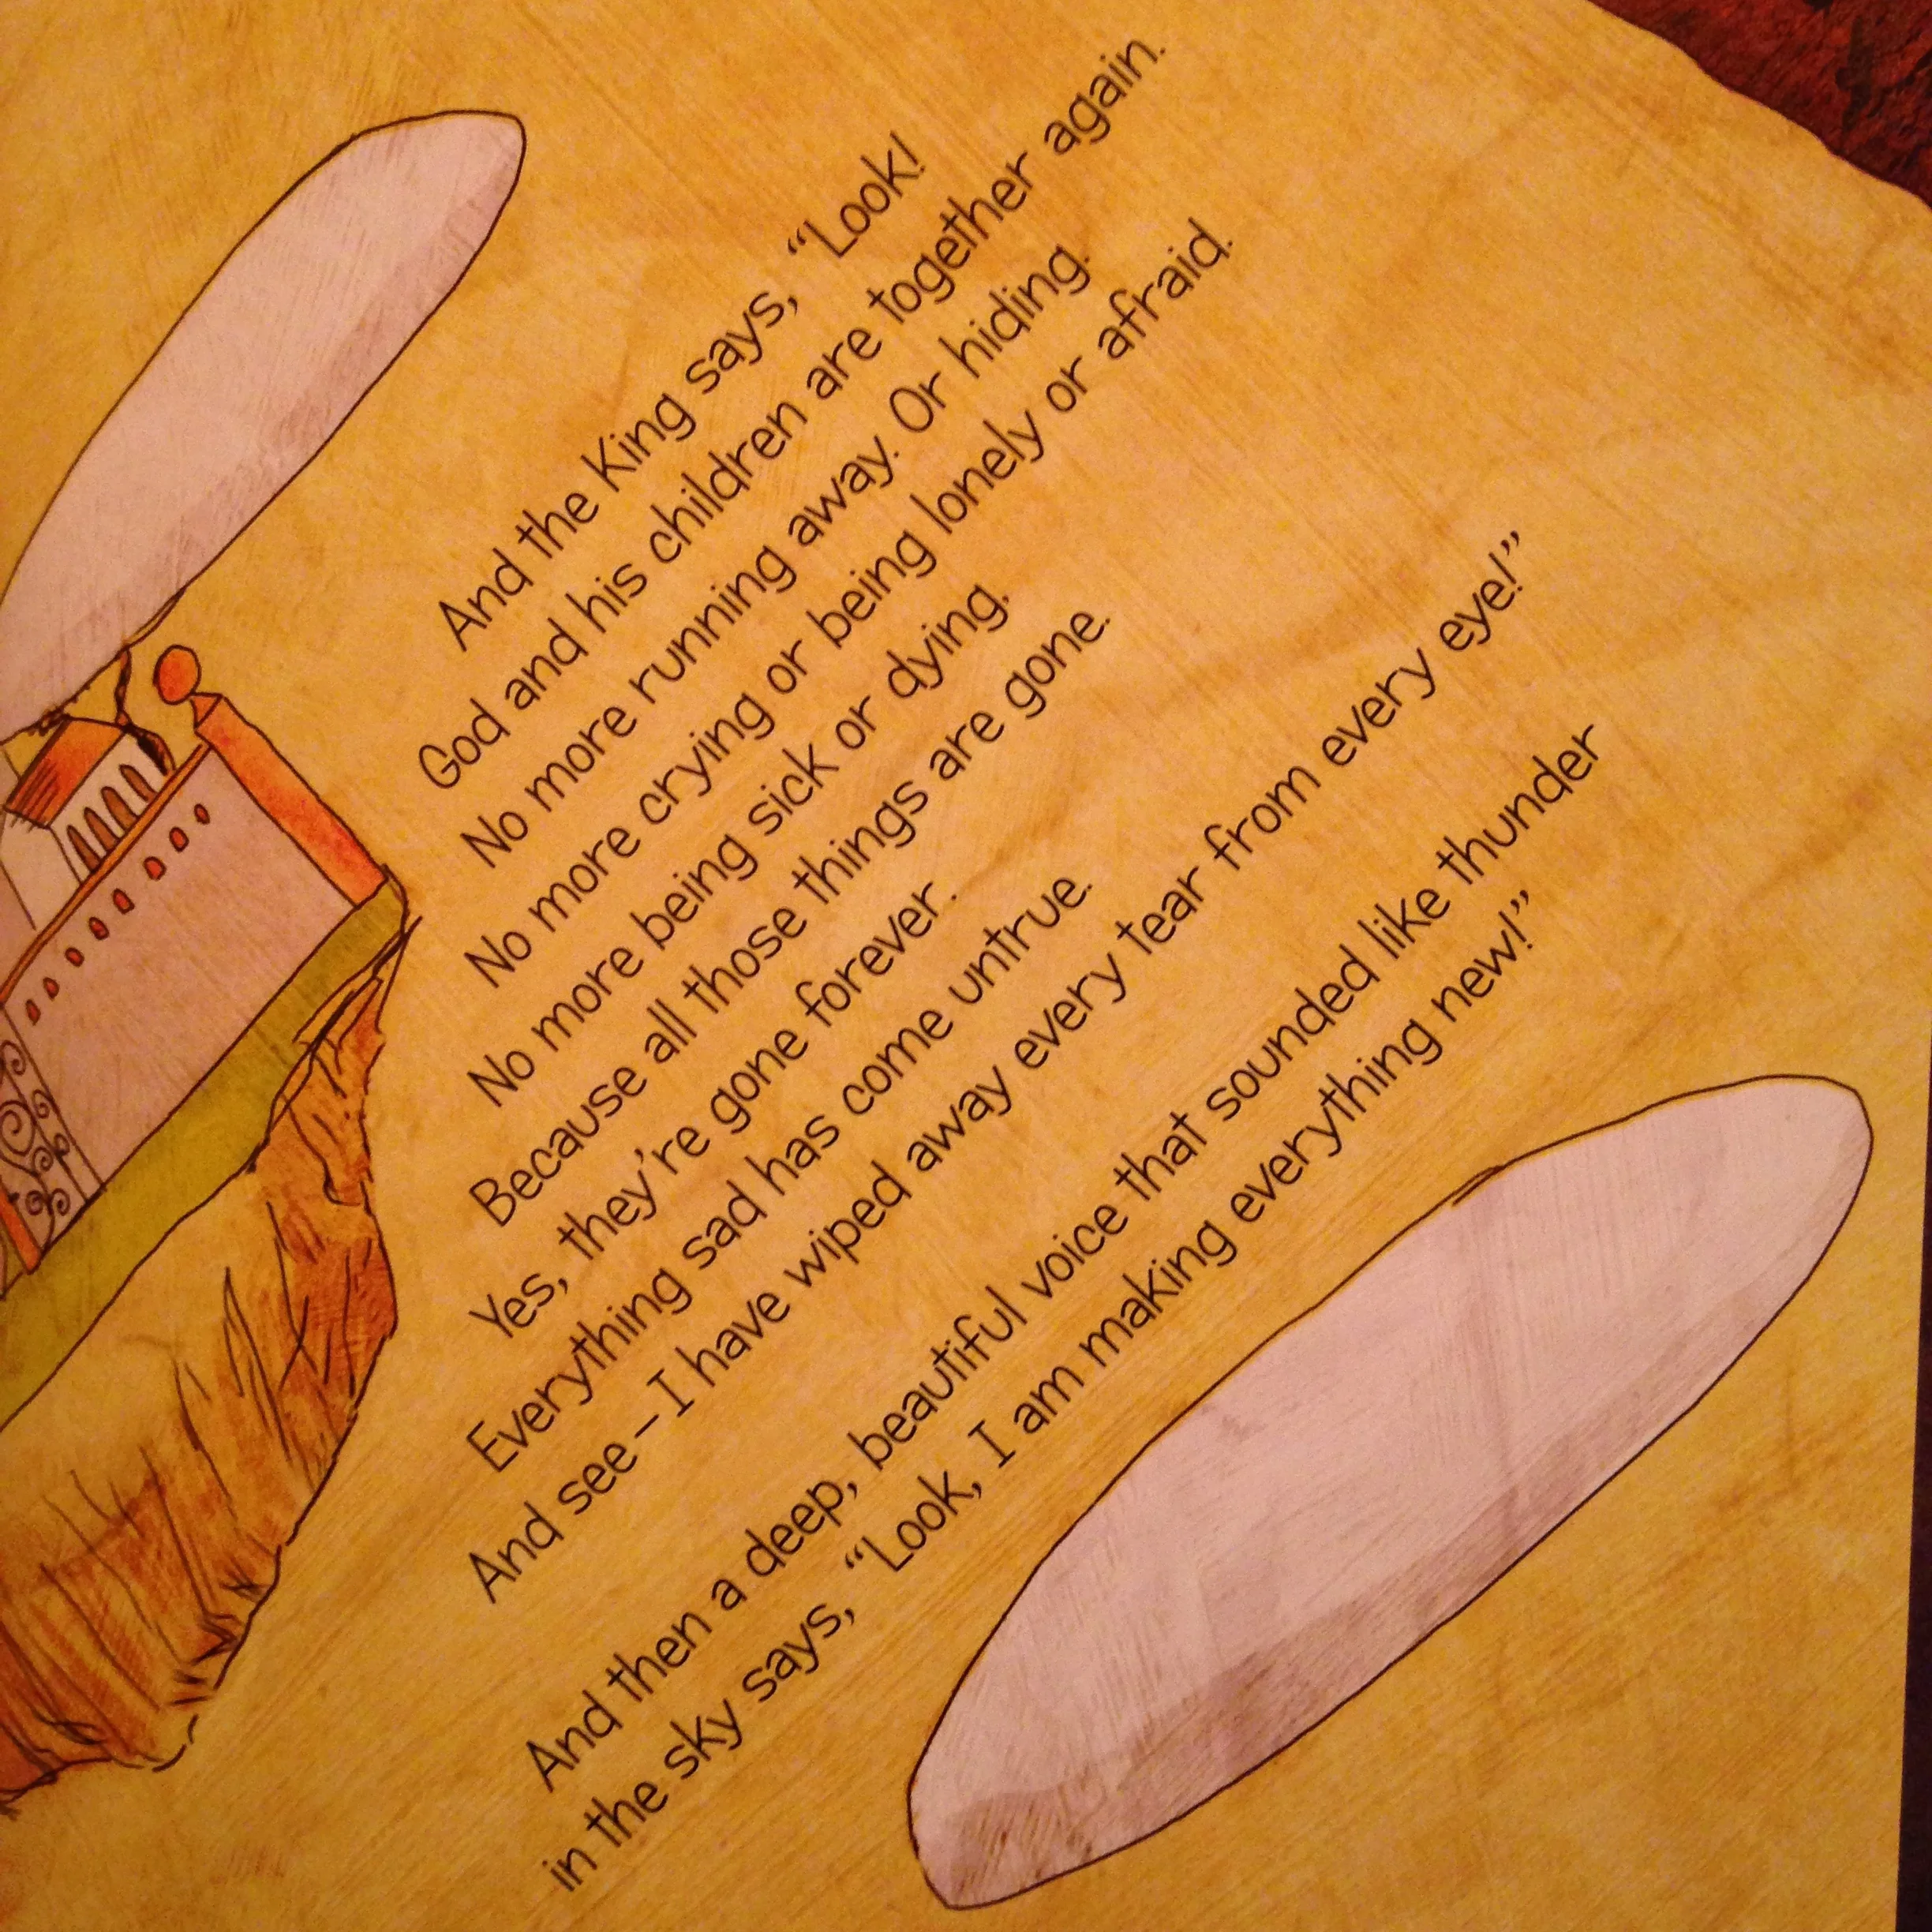 And the King says, “Look!
God and his children are together again.
No more running away. Or hiding.
No more crying or being lonely or afraid.
No more being sick or dying.
Because all those things are gone.
Yes, they're gone forever.
Everything sad has come untrue.
And see – I have wiped away every tear from every eye!”
And then a deep, beautiful voice that sounded like thunder
in the sky says, “Look, I am making everything new!”